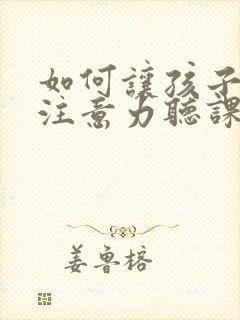 如何讓孩子
注意力聽課
姜魯榕